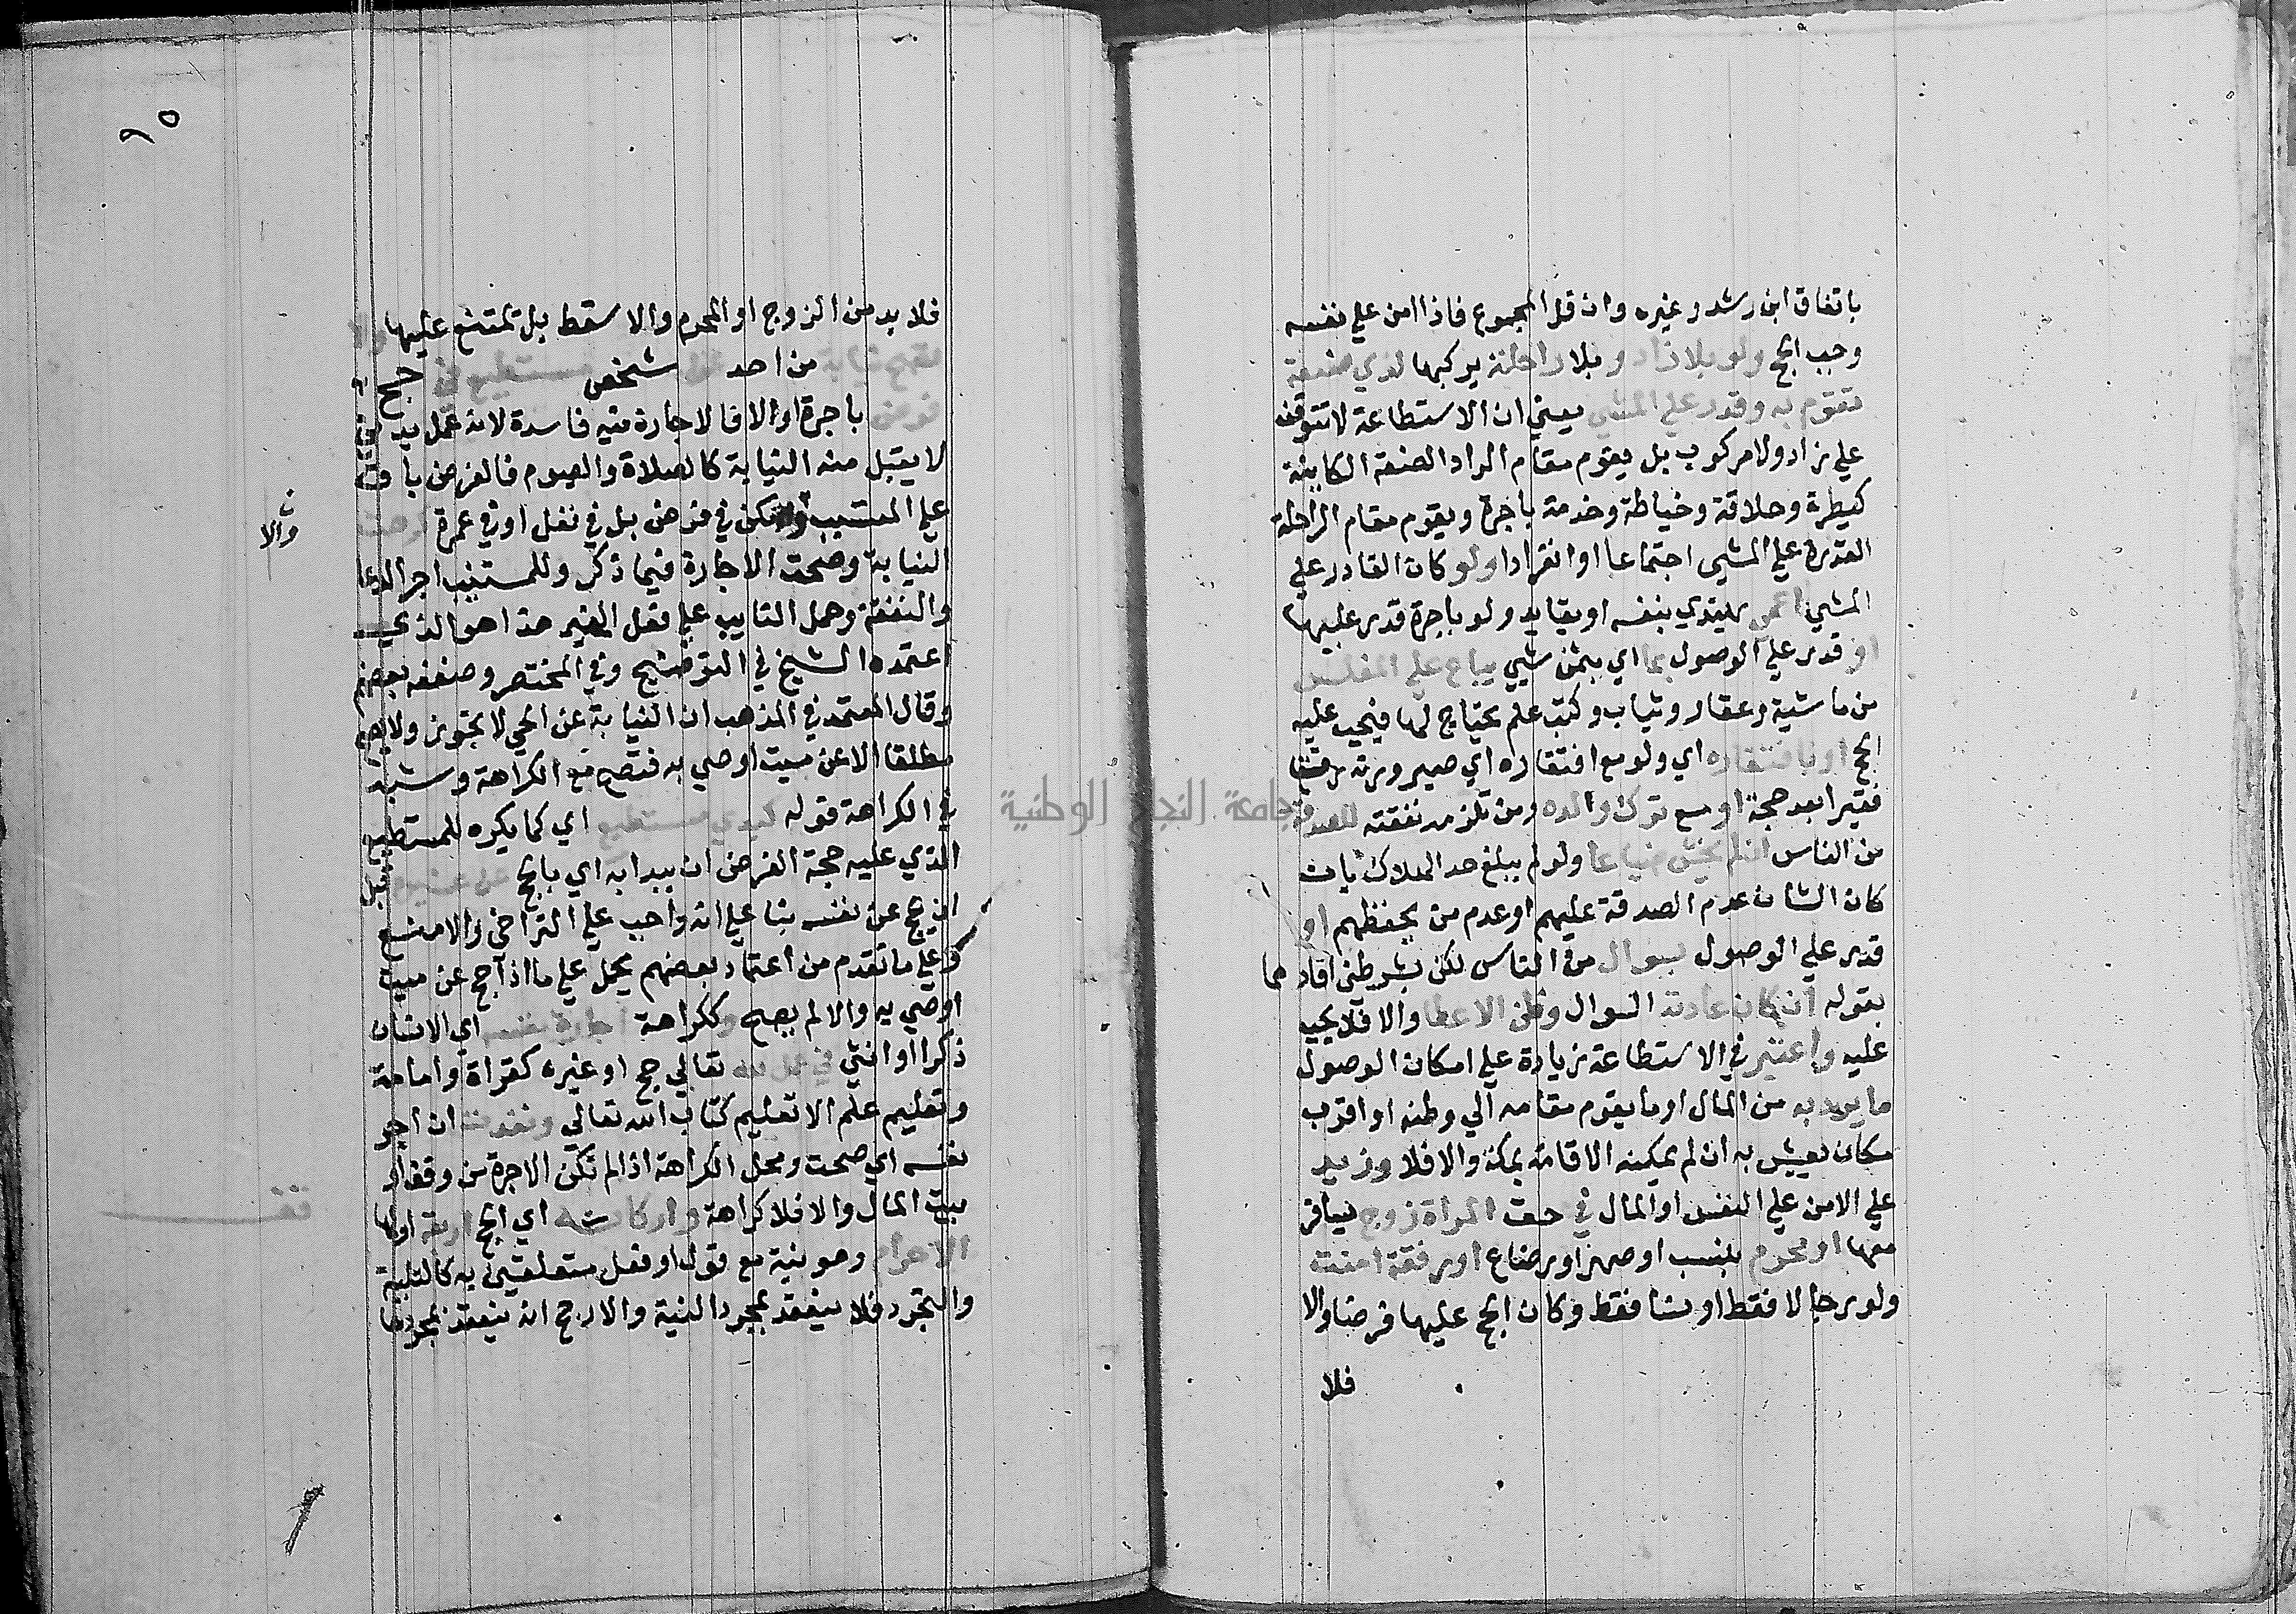 باتفاق ابن رشد وغيره وان قل المجموع فاذا امن علي نفسه
وجب الحج ولو بلا زاد وبلا راحلة يركبها لذي صنعة
تقوم به وقدر علي المشي يعني ان الاستطاعة لا تتوقف
علي زاد ولا مركوب بل يقوم مقام الزاد الصنعة الكاينة
كبيطرة وحلاقة وخياطة وخدمة باجرة ويقوم مقام الراحلة
القدرة علي المشي اجتماعا او انفرادا ولو كان القادر علي
المشي اعمي يهتدي بنفسه او بقايد ولو باجرة قدر عليها
او قدر علي الوصول بما اي بثمن شيي يباع علي المفلس
من ماشية وعقار وثياب وكتب علم يحتاج لها فيجب عليه
الحج او بافتقاره اي ولو مع افتقاره اي صيرورته
فقيرا بعد حجة او مع ترك والده ومن تلزمه نفقته للصدقة
من الناس ان لم يخش ضياعا ولو لم يبلغ حد الهلاك بان
كان الشان عدم الصدقة عليهم او عدم من يحفظهم او
قدر علي الوصول بسوال من الناس لكن بشرطين افادهما
بقوله ان كان عادته السوال وظن الاعطا والا فلا يجب
عليه واعتبر في الاستطاعة زيادة علي امكان الوصول
ما يرد به من المال او ما يقوم مقامه الي وطنه او اقرب
مكان يعيش به ان لم يمكنه الاقامة بمكة والا فلا وزيد
علي الامن علي النفس او المال في حق المراة زوج يسافر
معها او محرم بنسب او صهر او رضاع او رفقة امنت
ولو رجالا فقط او نسا فقط وكان الحج عليها فرضا والا
فلا
٩٥
فلا بد من الزوج او المحرم والا سقط بل تمتنع عليها ولا
تصح نيابة من احد عن شخص مستطيع في حج
فرض باجرة او لا فالاجارة فيه فاسدة لانه عمل بدني
لا يقبل منه النيابة كالصلاة والصوم فالفرض باق
علي المستنيب والا يكن في فرض بل في نفل او في عمرة كرهت
والا
النيابة وصحت الاجارة فيما ذكر وللمستنيب اجر الدعا
والنفقة وحمل النايب علي فعل الخير هذا هو الذي
اعتمده الشيخ في التوضيح وفي المختصر وضعفه بعضهم
وقال المعتمد في المذهب ان النيابة عن الحي لا تجوز ولا تصح
مطلقا الا عن ميت اوصي به فتصح مع الكراهة وشبه
في الكراهة قوله كبدي مستطيع اي كما يكره للمستطيع
الذي عليه حجة الفرض ان يبدا به اي بالحج عن غيره قبل
ان يحج عن نفسه بنا علي انه واجب علي التراخي والا منع
وعلي ما تقدم من اعتماد بعضهم يحمل علي ما اذا حج عن ميت
اوصي به والا لم يصح وككراهة اجارة نفسه اي الانسان
ذكرا او انثي في عمل لله تعالي حج او غيره كقراة وامامة
وتعليم علم الا تعليم كتاب الله تعالي ونفذت ان اجر
نفسه اي صحت ومحل الكراهة اذا لم تكن الاجرة من وقف او
بيت المال والا فلا كراهة واركانه اي الحج اربعة اولها
قف
الاحرام وهو نية مع قول او فعل متعلقين به كالتلبية
والتجرد فلا ينعقد بمجرد النية والارجح انه ينعقد بمجردها
جامعة النجاح الوطنية